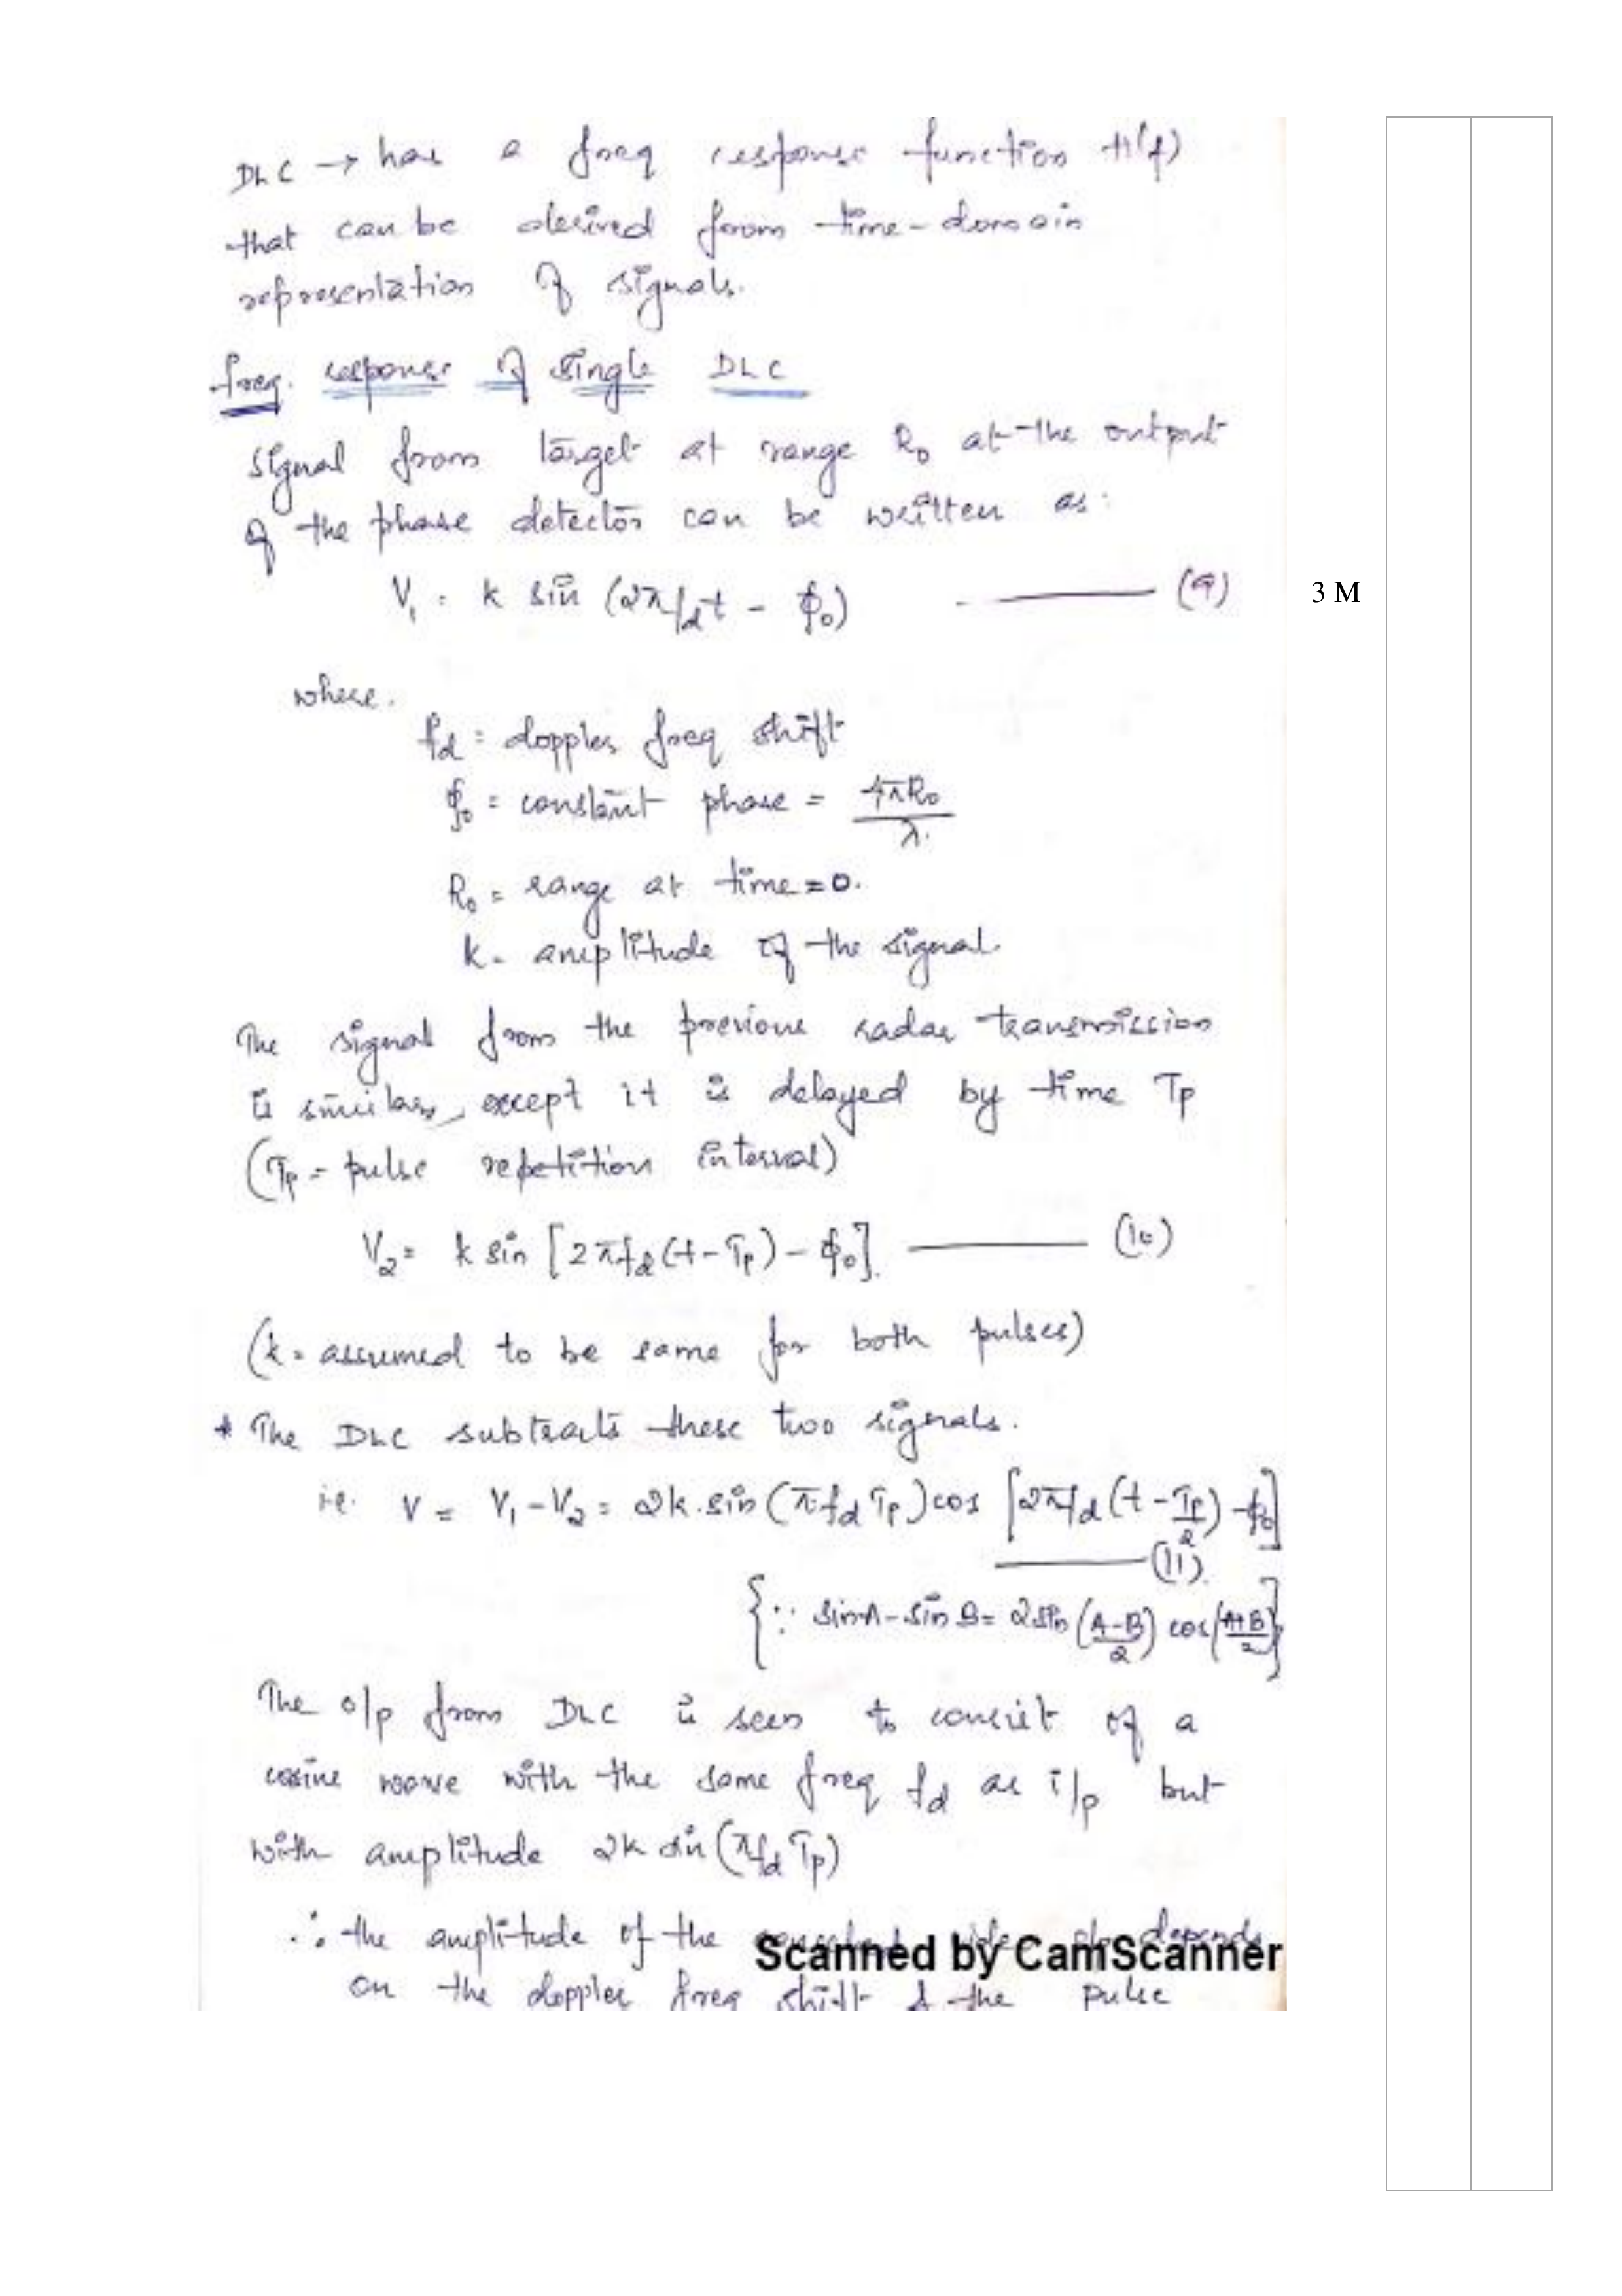 DLC → has a freq response function H(f)
that can be derived from time-domain
representation of signals.
freq. response of single DLC
signal from target at range R₀ at the output
of the phase detector can be written as:
V₁ = k sin (2πf_d t - ϕ₀) ——— (9)
3 M
where.
f_d = doppler freq shift
ϕ₀ = constant phase = 4πR₀/λ.
R₀ = range at time = 0.
k = amplitude of the signal.
The signal from the previous radar transmission
is similar, except it is delayed by time Tp
(Tp = pulse repetition interval)
V₂ = k sin [2πf_d (t - Tp) - ϕ₀]. ——— (10)
(k = assumed to be same for both pulses)
* The DLC subtracts these two signals.
i.e. V = V₁ - V₂ = 2k. sin (πf_d Tp) cos [2πf_d (t - Tp/2) - ϕ₀]
——— (11).
{∵ sinA - sin B = 2 sin (A-B/2) cos (A+B/2)}
The o/p from DLC is seen to consist of a
cosine wave with the same freq f_d as i/p but
with amplitude 2k sin (πf_d Tp)
∴ the amplitude of the depends
Scanned by CamScanner
on the doppler freq shift & the pulse